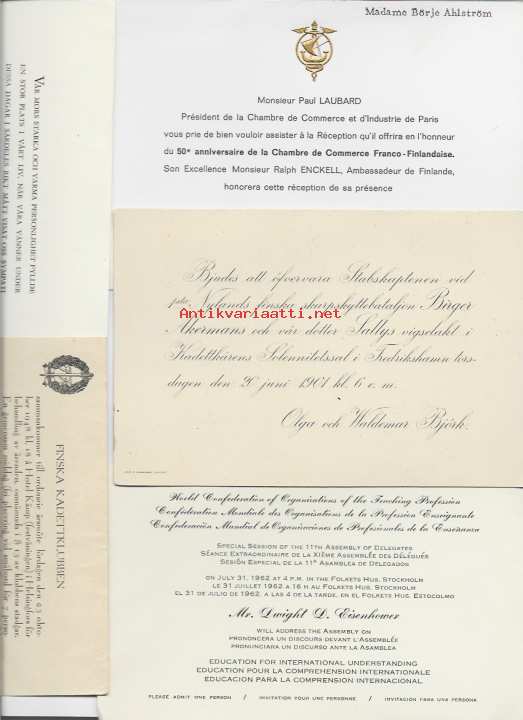 Madame Börje Ahlström
Monsieur Paul LAUBARD
Président de la Chambre de Commerce et d'Industrie de Paris
vous prie de bien vouloir assister à la Réception qu'il offrira en l'honneur
du 50e anniversaire de la Chambre de Commerce Franco-Finlandaise.
Son Excellence Monsieur Ralph ENCKELL, Ambassadeur de Finlande,
honorera cette réception de sa présence
Bjudes att öfvervara Stabskaptenen vid
Nylands finska skarpskyttebataljon Birger
Åkermans och vår dotter Sallys vigselakt i
Kadettkårens Solennitetssal i Fredrikshamn tors-
dagen den 20 juni 1901 kl. 6 e. m.
Olga och Waldemar Björk.
Antikvariaatti.net
World Confederation of Organizations of the Teaching Profession
Confédération Mondiale des Organisations de la Profession Enseignante
Confederación Mundial de Organizaciones de Profesionales de la Enseñanza
SPECIAL SESSION OF THE 11TH ASSEMBLY OF DELEGATES
SÉANCE EXTRAORDINAIRE DE LA XIÈME ASSEMBLÉE DES DÉLÉGUÉS
SESIÓN ESPECIAL DE LA 11a ASAMBLEA DE DELEGADOS
ON JULY 31, 1962 AT 4 P.M. IN THE FOLKETS HUS, STOCKHOLM
LE 31 JUILLET 1962 A 16 H AU FOLKETS HUS, STOCKHOLM
EL 31 DE JULIO DE 1962, A LAS 4 DE LA TARDE, EN EL FOLKETS HUS, ESTOCOLMO
Mr. Dwight D. Eisenhower
WILL ADDRESS THE ASSEMBLY ON
PRONONCERA UN DISCOURS DEVANT L'ASSEMBLÉE
PRONUNCIARA UN DISCURSO ANTE LA ASAMBLEA
EDUCATION FOR INTERNATIONAL UNDERSTANDING
EDUCATION POUR LA COMPREHENSION INTERNATIONALE
EDUCACION PARA LA COMPRENSION INTERNACIONAL
PLEASE ADMIT ONE PERSON / INVITATION POUR UNE PERSONNE / INVITACION PARA UNA PERSONA
VÅR MORS STARKA OCH VARMA PERSONLIGHET FYLLDE
EN STOR PLATS I VÅRT LIV. NÄR VÅRA VÄNNER UNDER
DESSA DAGAR I SÄRDELES RIKT MÅTT VISAT OSS SYMPATI
FINSKA KADETTKLUBBEN
sammankommer till ordinarie årsmöte lördagen den 23 okto-
ber 1948 kl. 18 å Hotel Kämp i Helsingfors för
behandling av ärenden, omnämnda i § 13 av klubbens stadgar.